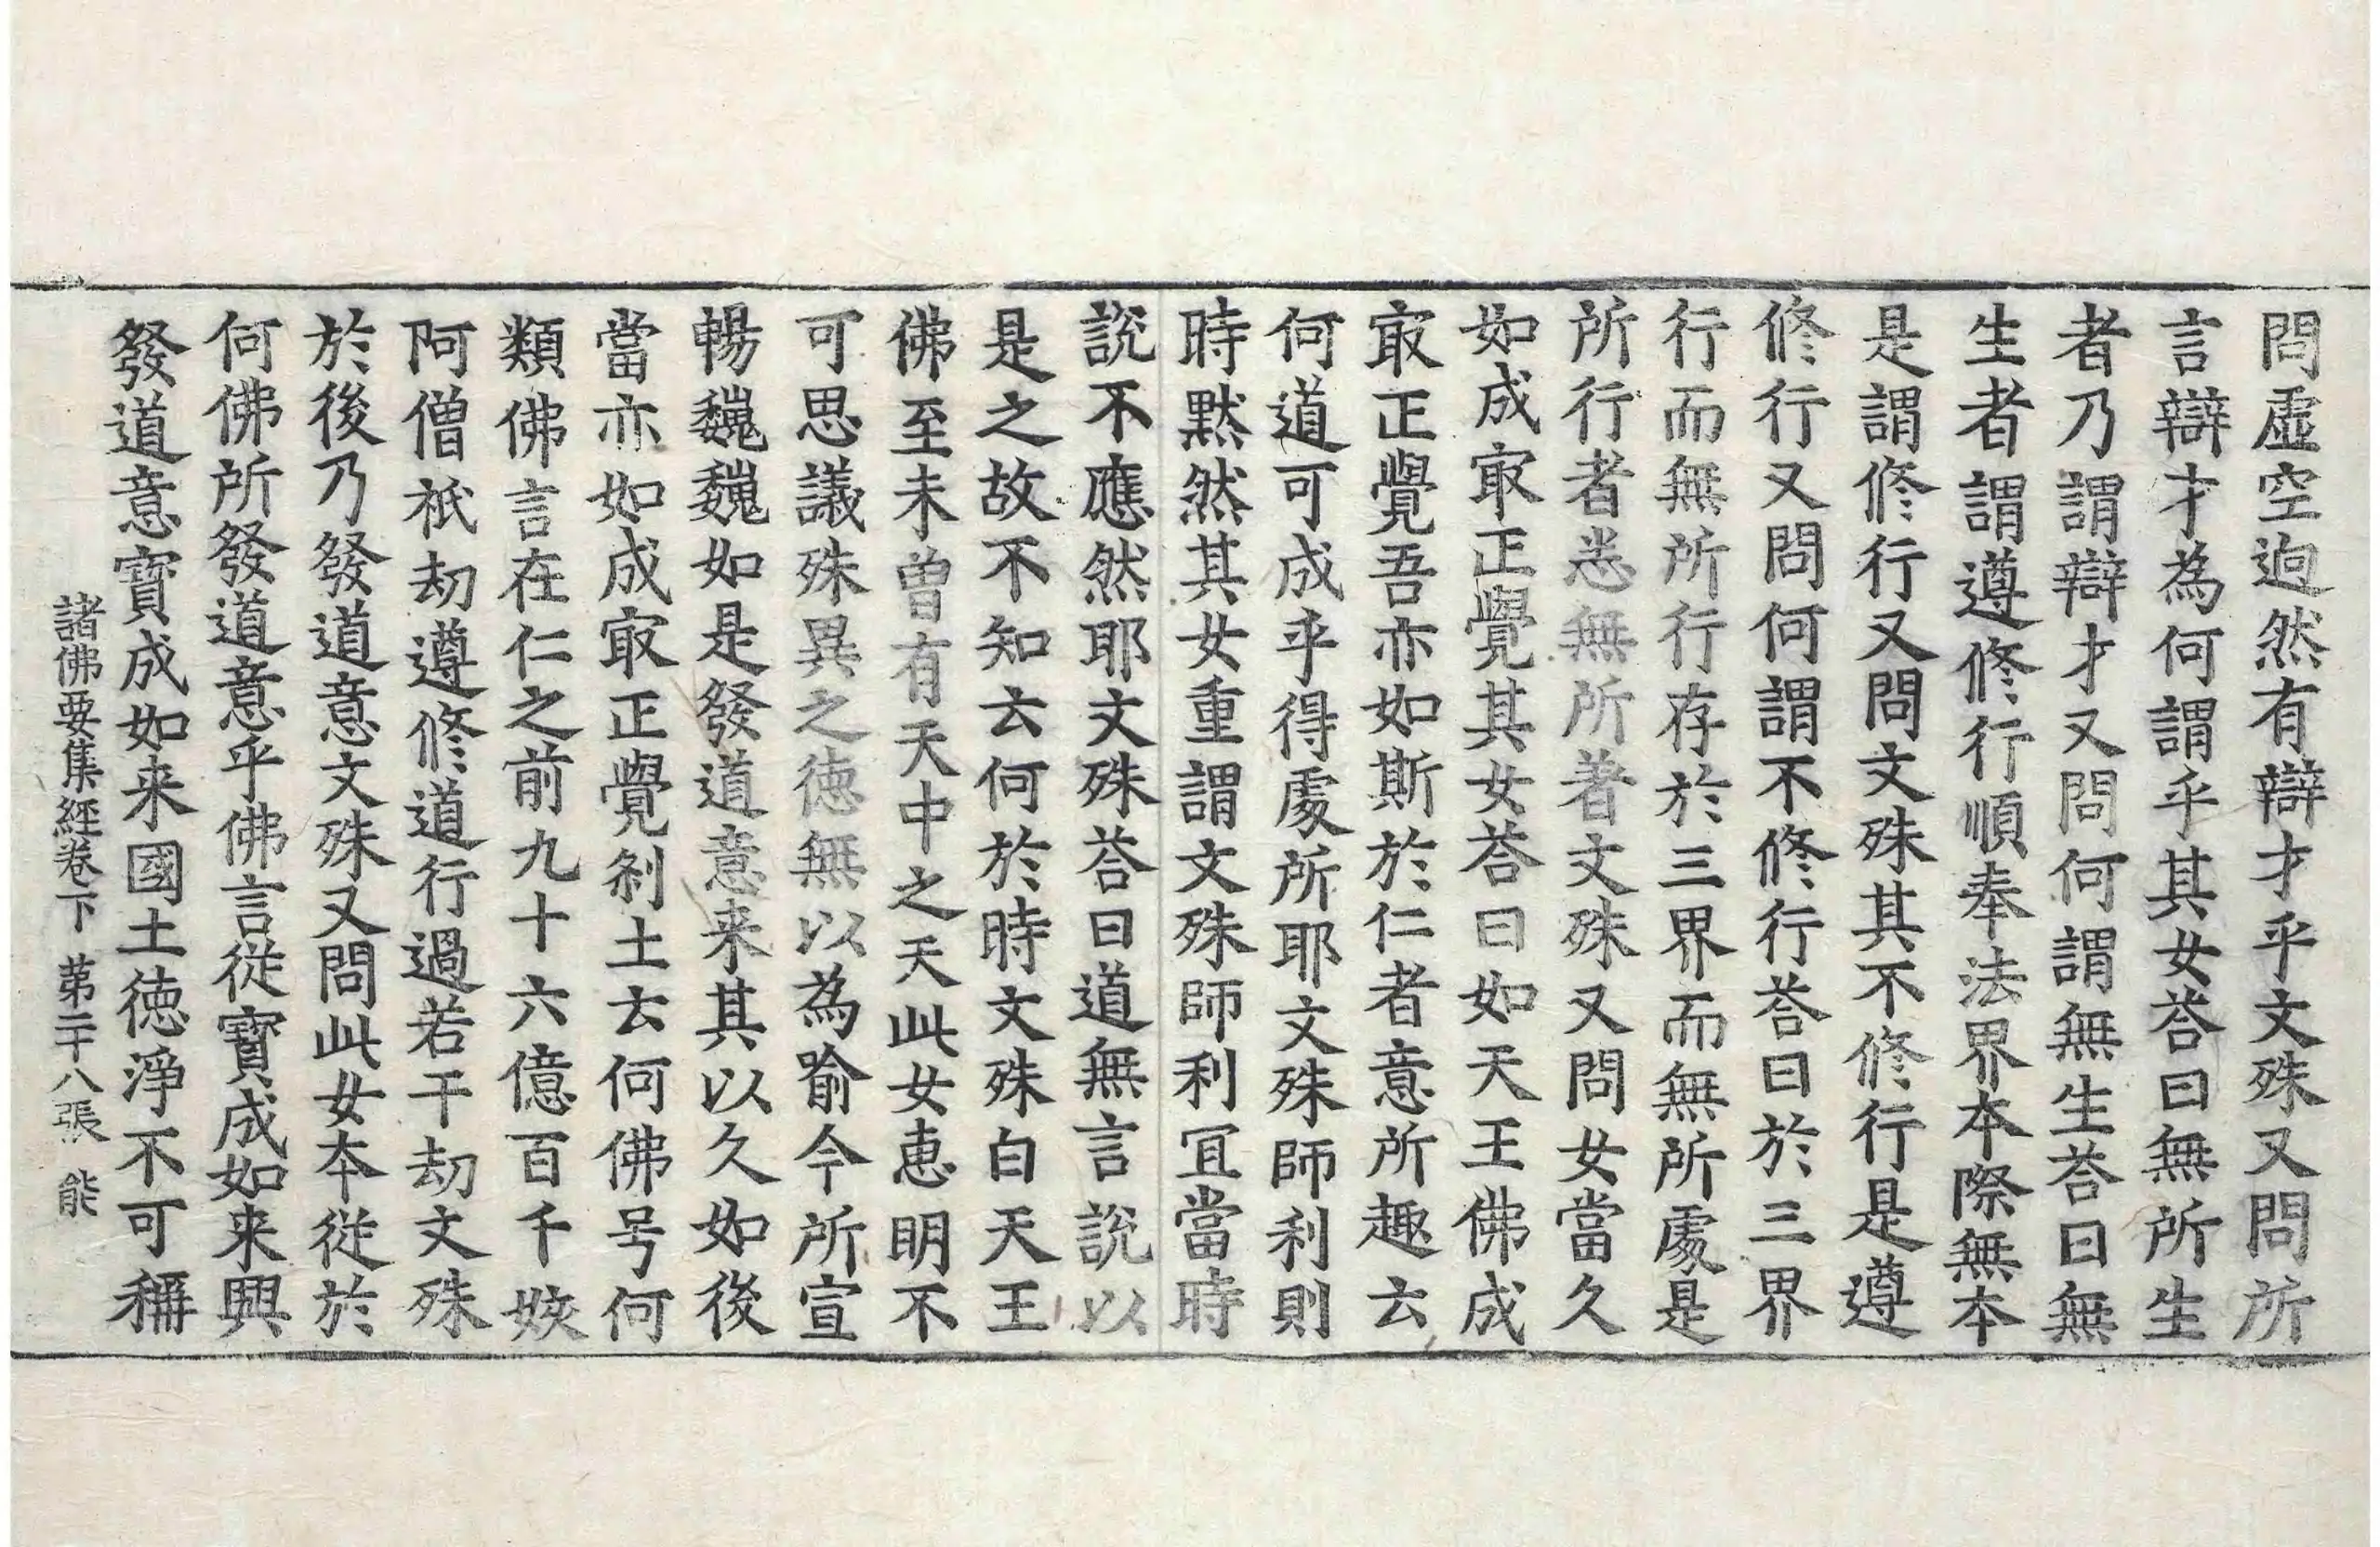 問虛空逈然有辯才乎文殊又問所
言辯才為何謂乎其女荅曰無所生
者乃謂辯才又問何謂無生荅曰無
生者謂遵修行順奉法界本際無本
是謂修行又問文殊其不修行是遵
修行又問何謂不修行荅曰於三界
行而無所行存於三界而無所處是
所行者悉無所著文殊又問女當久
如成冣正覺其女荅曰如天王佛成
冣正覺吾亦如斯於仁者意所趣云
何道可成乎得處所耶文殊師利則
時黙然其女重謂文殊師利冝當時
說不應然耶文殊荅曰道無言說以
是之故不知云何於時文殊白天王
佛至未曽有天中之天此女恵明不
可思議殊異之徳無以為喻今所宣
暢巍巍如是發道意来其以久如後
當亦如成冣正覺剎土云何佛号何
類佛言在仁之前九十六億百千姟
阿僧祇劫遵修道行過若干劫文殊
於後乃發道意文殊又問此女本従於
何佛所發道意乎佛言從寶成如来興
發道意寶成如来國土徳淨不可稱
諸佛要集經卷下　第二十八張　能